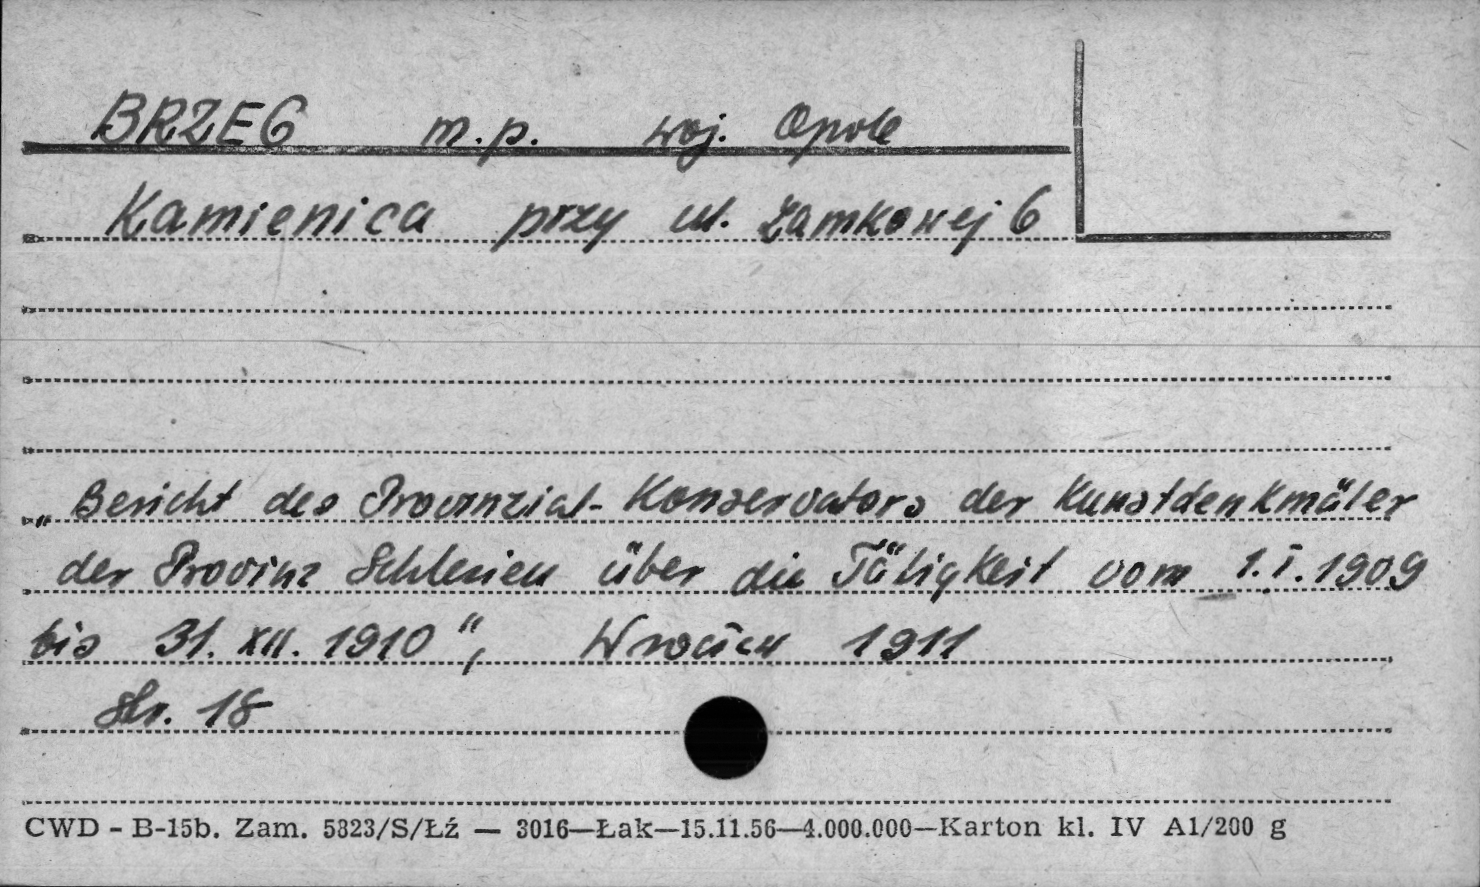 BRZEG m.p. woj. Opole
Kamienica przy ul. Zamkowej 6
„Bericht des Provinzial-Konservators der Kunstdenkmäler
der Provinz Schlesien über die Tätigkeit vom 1.I.1909
bis 31.XII.1910“, Wrocław 1911
Str. 18
CWD - B-15b. Zam. 5823/S/Łź — 3016—Łak—15.11.56—4.000.000—Karton kl. IV A1/200 g